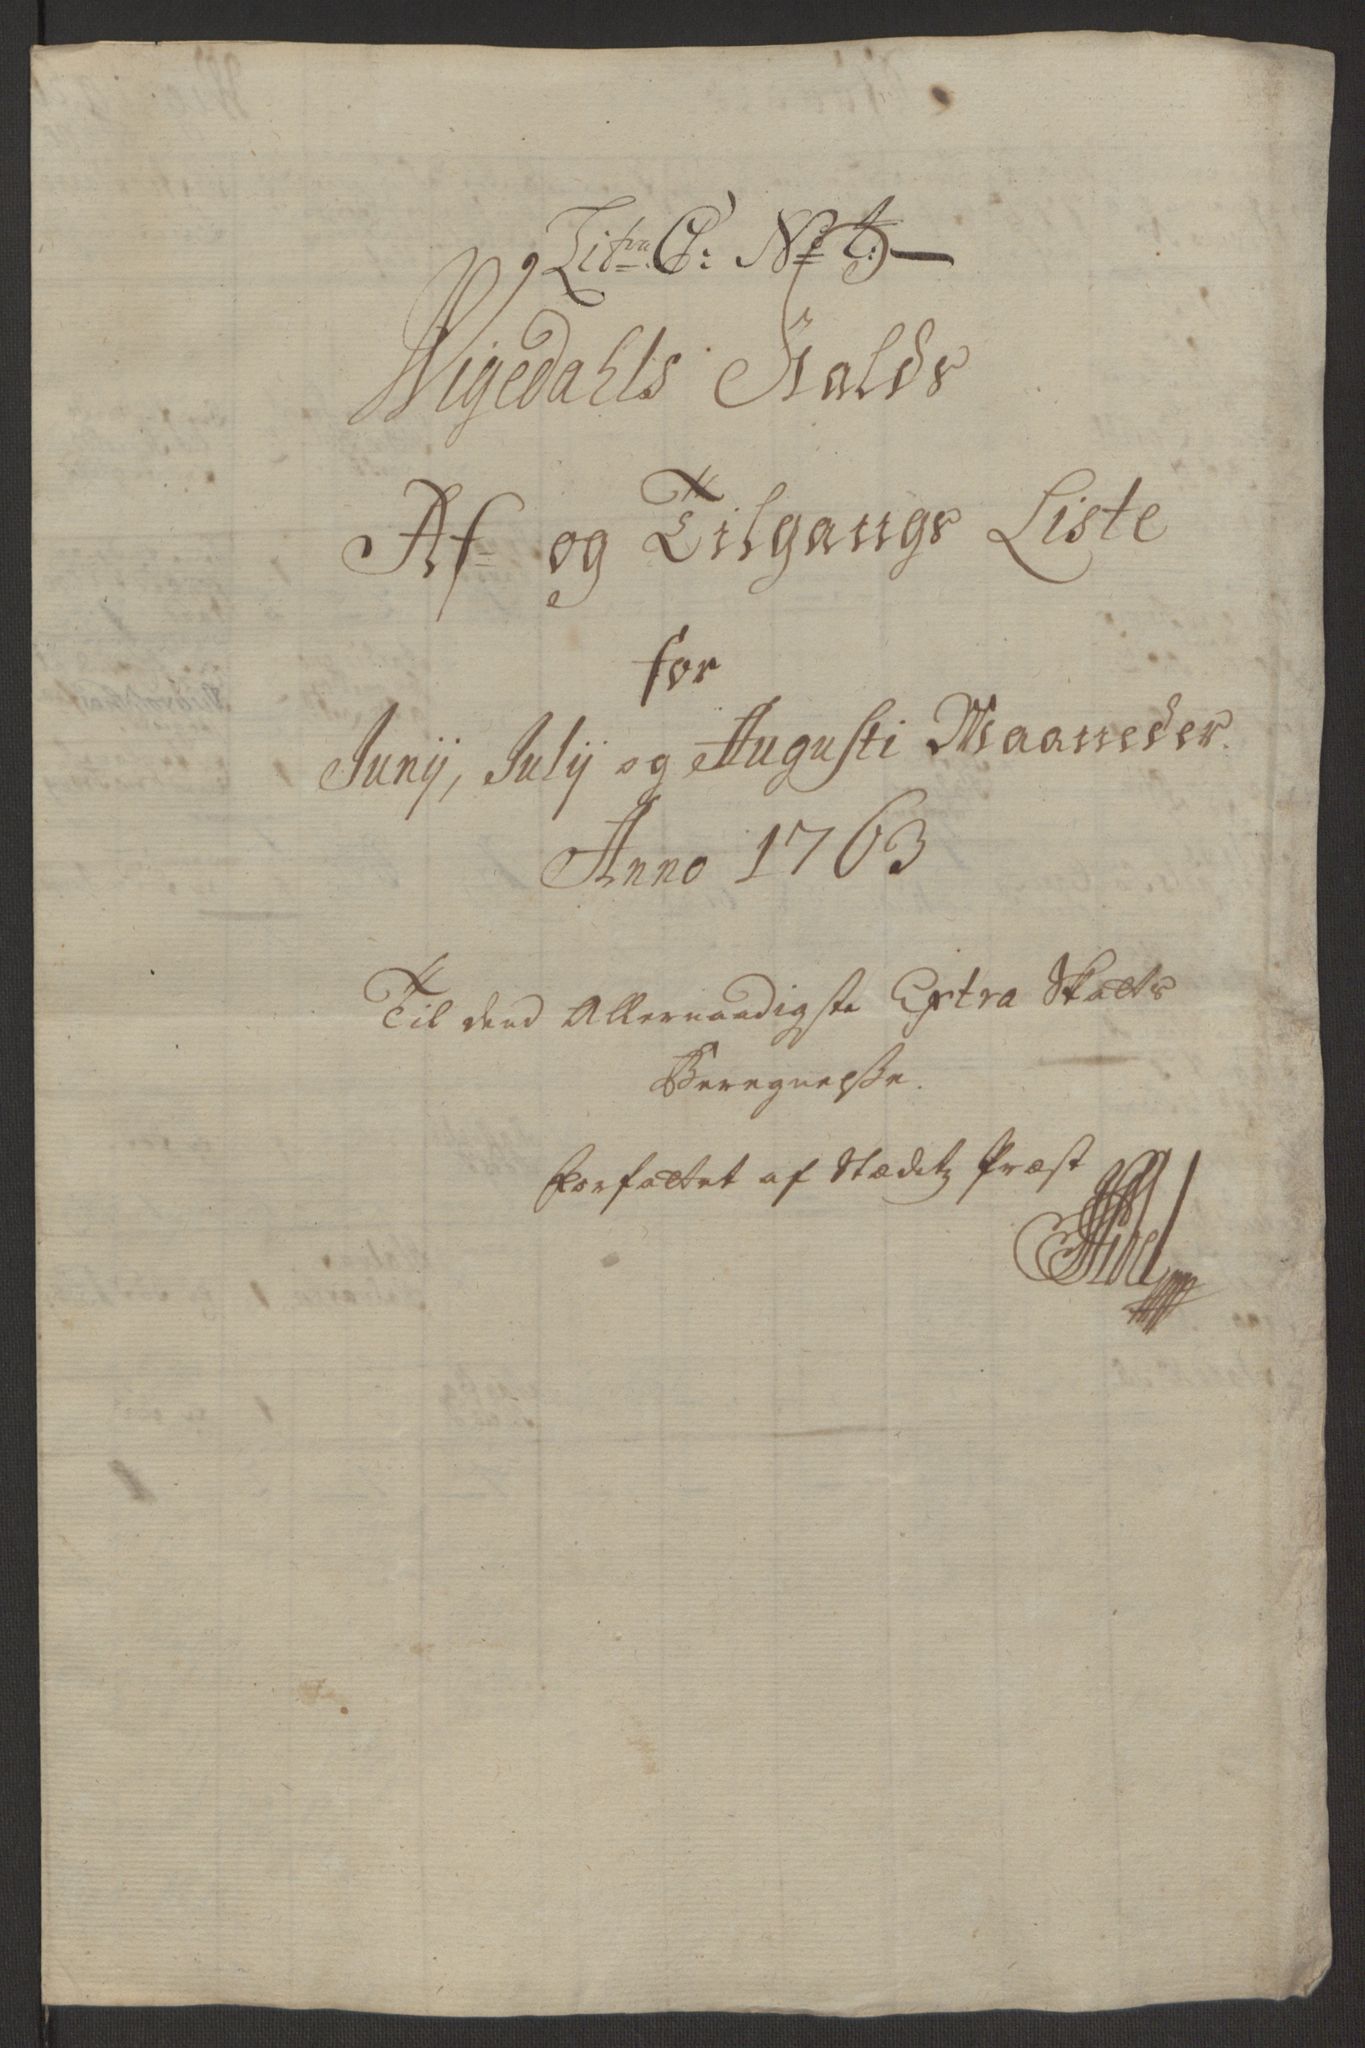 Litra C: No 4.
Wigedahls Gialds
Af- og Tilgangs Liste
for
Junij, Julij og Augusti Maaneder.
Anno 1763
Til dend Allernaadigste Extra Skatts
Beregnelsse.
Forfattet af Stædetz Præst